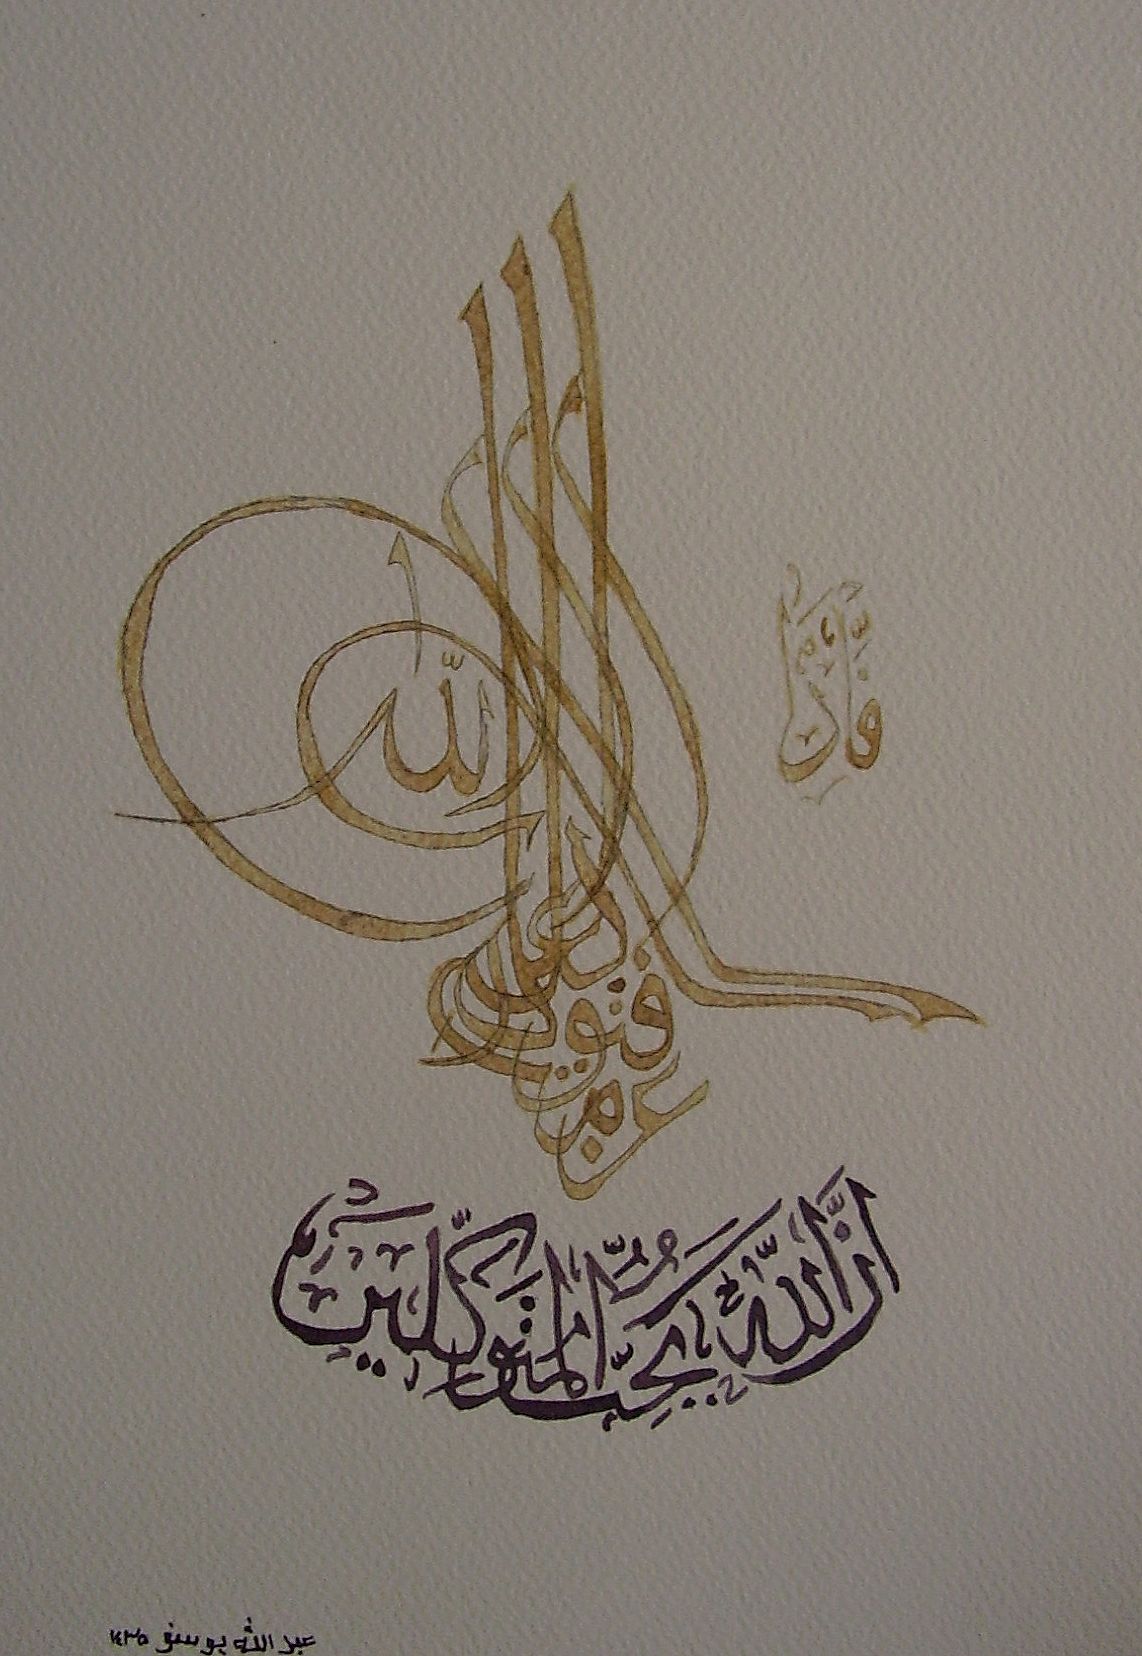 فَإِذَا
عزمت فتوكل على الله
إِنَّ اللَّهَ يُحِبُّ الْمُتَوَكِّلِينَ
عبد الله يوسفو ١٤٣٥